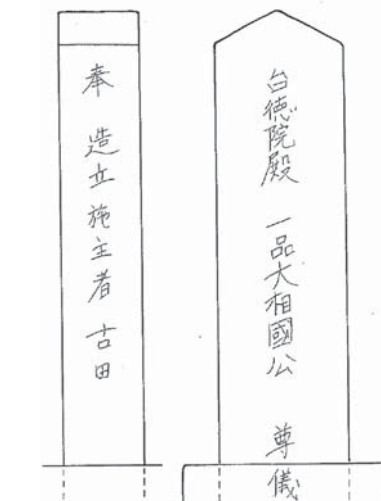 台徳院殿 一品大相國公 尊儀
奉 造立施主者 古田